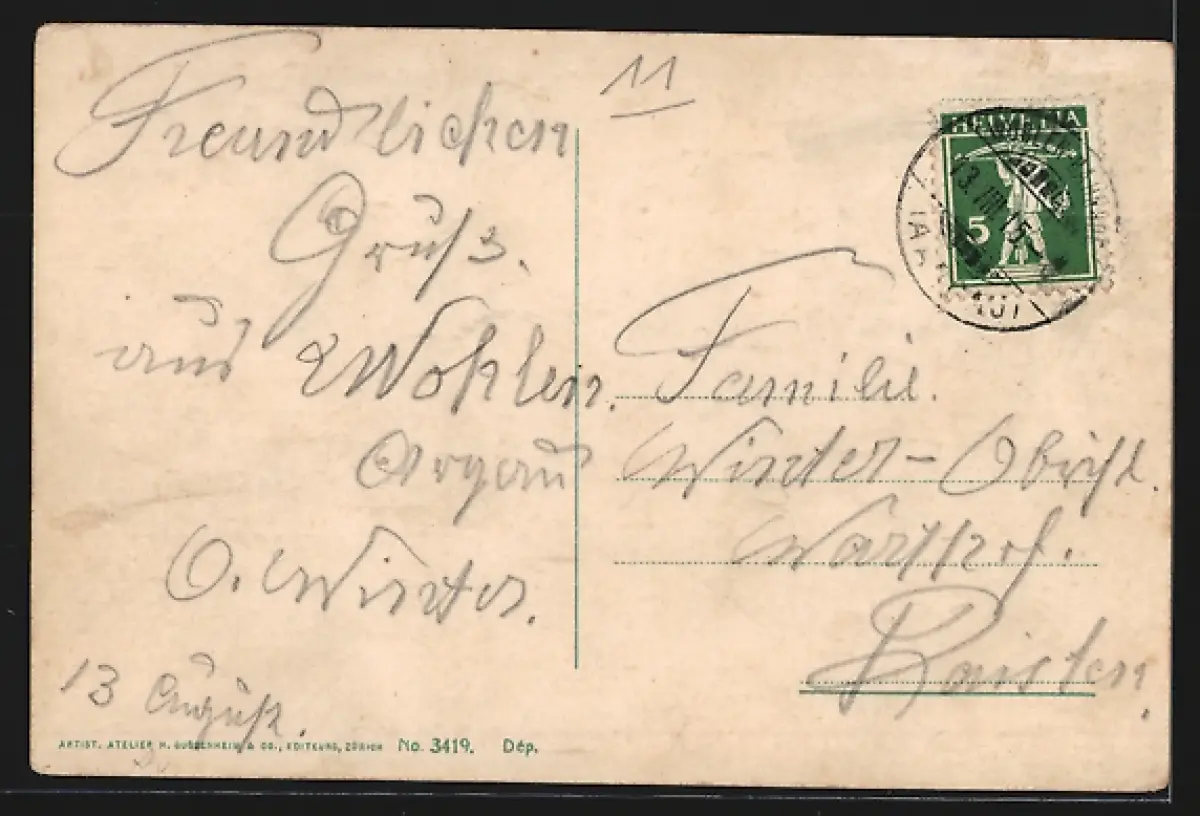 11
Freundlichen
Gruß.
aus Wohlen.
Argau
O. Winter.
13 August.
HELVETIA
5
Familie.
Winter-Obrist.
Warthof.
Kaisten.
ARTIST. ATELIER H. GUGGENHEIM & CO., EDITEURS, ZÜRICH No. 3419. Dép.